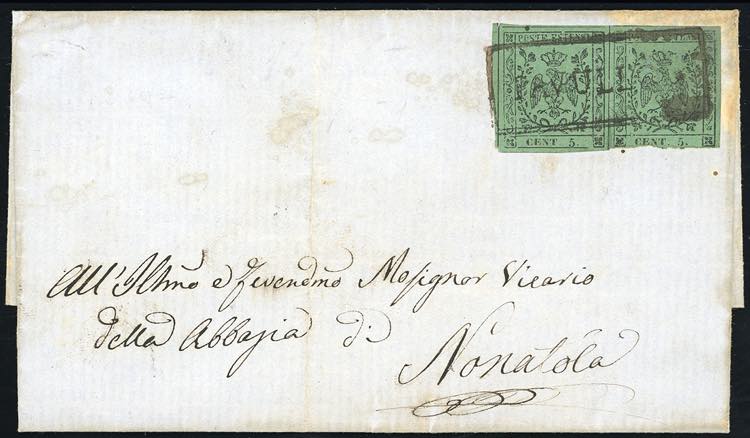 POSTE ESTENSI
CENT 5. CENT 5.
All'Illmo e Revendmo Mosignor Vicario
della Abbazia di
Nonatola